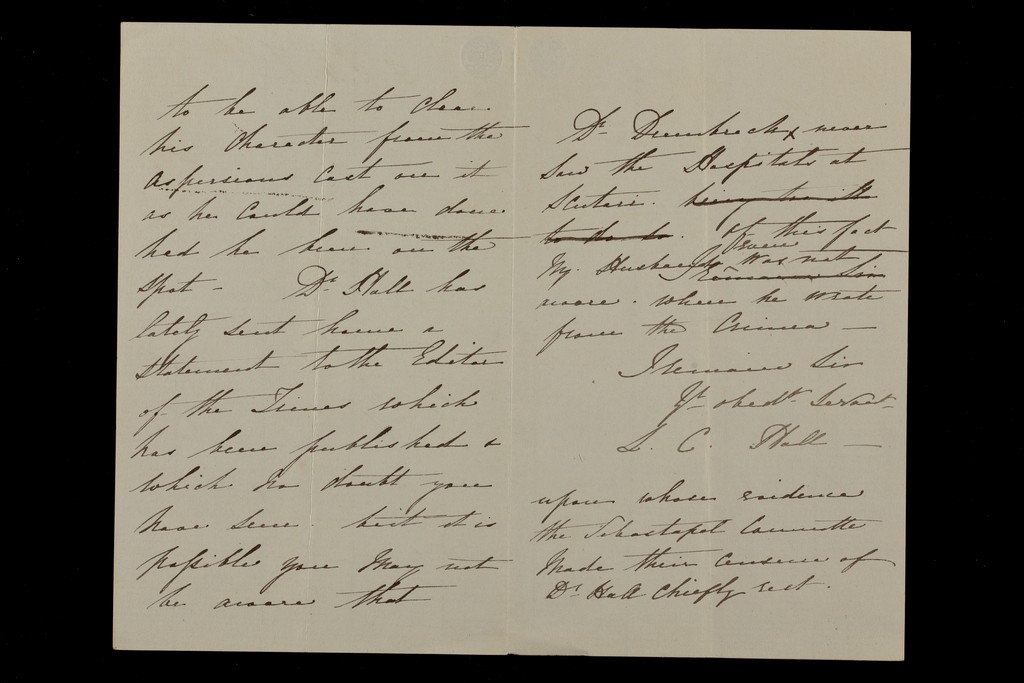 to be able to clear
his Character from the
aspersions cast on it
as he could have done
had he been on the
spot - Dr Hall has
lately sent home a
Statement to the Editor
of the Times which
has been published &
which no doubt you
have seen but it is
possible you may not
be aware that
Dr x never
saw the Hospitals at
Scutari. being too ill
to do so. Of this fact
My Husband even was not
I remain Sir
aware. when he wrote
from the Crimea —
I remain Sir
Yr obedt Servant
L. C. Hall —
upon whose evidence
the Sebastopol Committee
Made their Censure of
Dr Hall Chiefly rest.